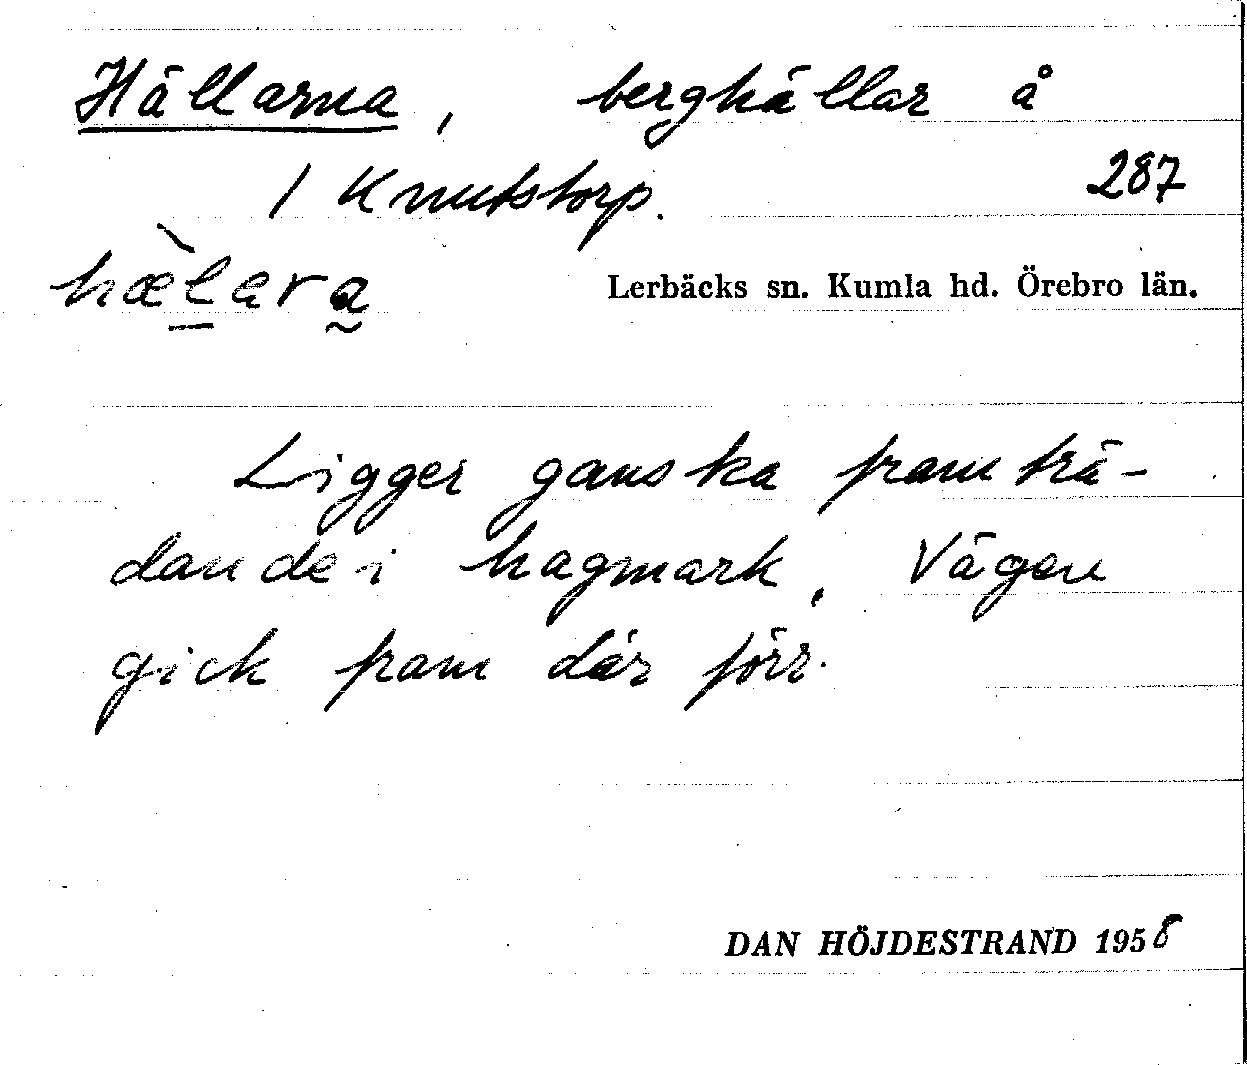 Hällarna, berghällar å
1 Knutstorp. 287
hæ̀lara
Lerbäcks sn. Kumla hd. Örebro län.
Ligger ganska framträ-
dande i hagmark. Vägen
gick fram där förr.
DAN HÖJDESTRAND 1958